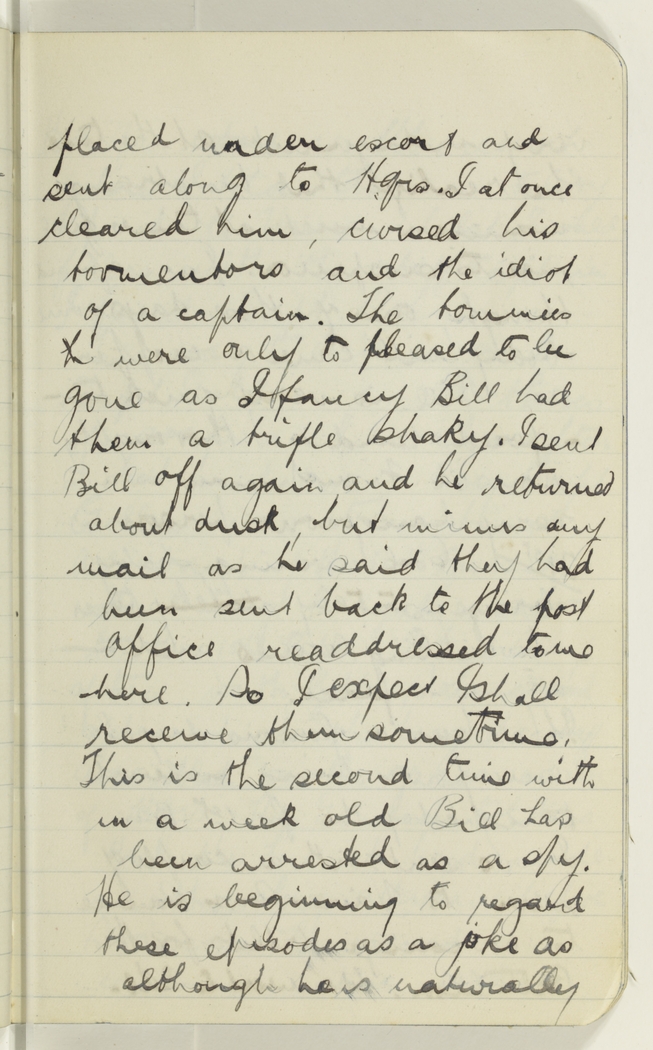 placed under escort and
sent along to Hqrs. I at once
cleared him, cursed his
tormentors and the idiot
of a captain. The tommies
were only to pleased to be
gone as I fancy Bill had
them a trifle shaky. I sent
Bill off again and he returned
about dusk, but minus any
mail as he said they had
been sent back to the post
office readdressed to me
here. So I expect I shall
receive them sometime.
This is the second time with
in a week old Bill has
been arrested as a spy.
He is beginning to regard
these episodes as a joke as
although he is naturally